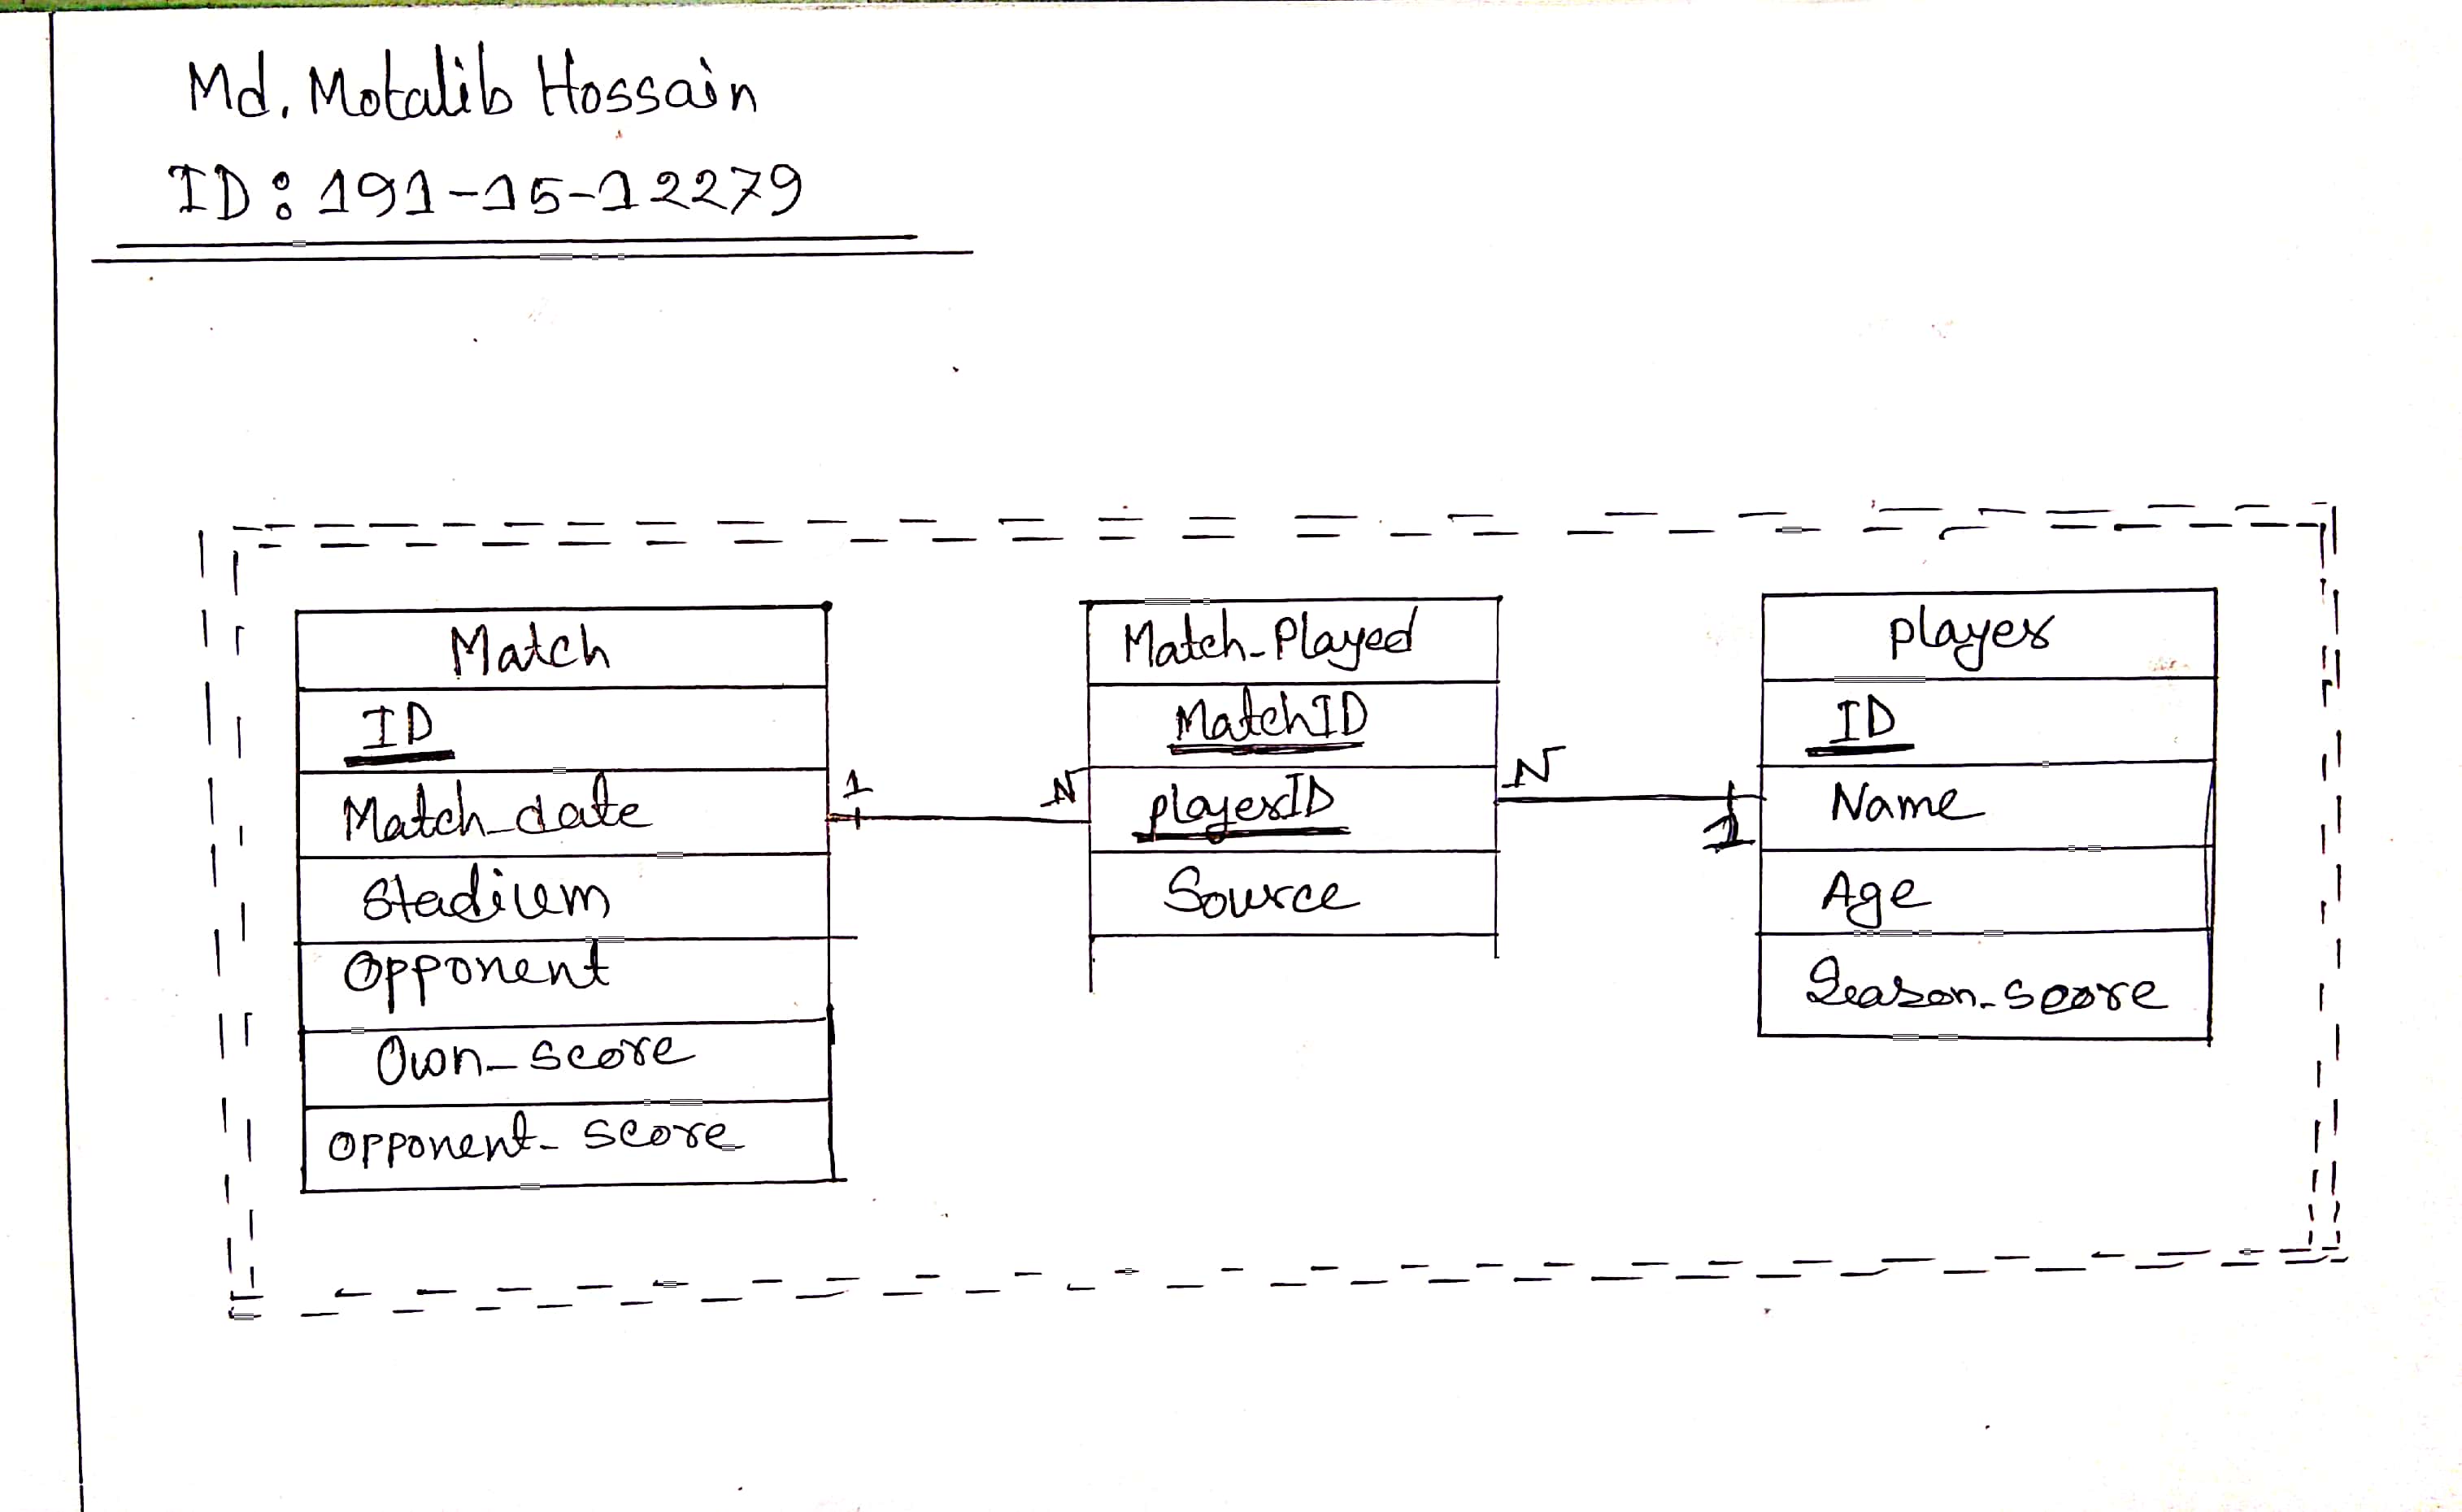 Md. Motalib Hossain
ID: 191-15-12279
Match
ID
Match_date
Stadium
Opponent
Own_score
opponent_score
1
N
Match_Played
MatchID
playerID
Source
N
1
player
ID
Name
Age
Season_score